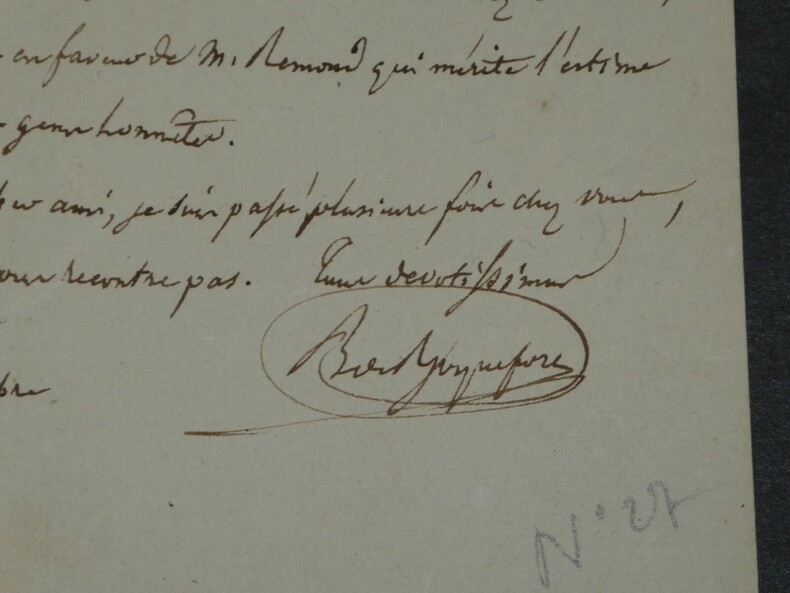 en faveur de M. Remond qui mérite l'estime
gens honnêtes.
ami, je suis passé plusieurs fois chez vous,
vous recontre pas. Tuus devotissimus
B. de Roquefort
bre
N° 27